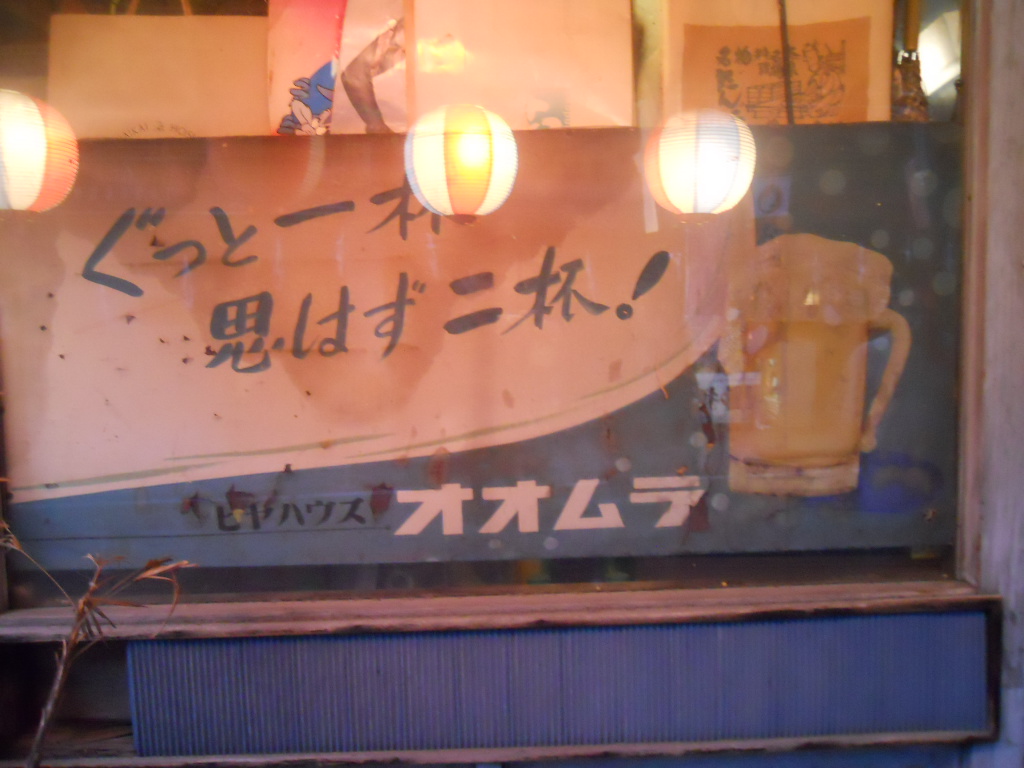 ぐっと一杯
思はず二杯!
ビヤハウス オオムラ